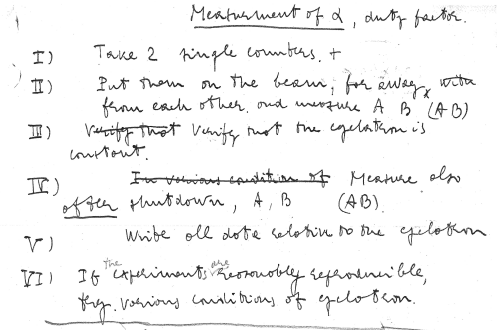 Measurment of α, duty factor.
I) Take 2 single counters. +
II) Put them on the beam, far away, with
from each other. and measure A B (AB)
III) Verify that Verify that the cyclotron is
constant.
IV) In various condition of Measure also
often shutdown, A, B (AB).
V) Write all data relative to the cyclotron
VI) If the experiments are reasonably reproducible,
try various conditions of cyclotron.